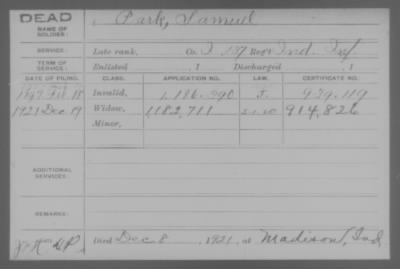 DEAD
NAME OF SOLDIER:
Park, Samuel
SERVICE:
Late rank, Co. I 137 Reg't Ind. Inf
TERM OF SERVICE:
Enlisted , 1 Discharged , 1
DATE OF FILING. CLASS. APPLICATION NO. LAW. CERTIFICATE NO.
1897 Feb 18 Invalid, 1,186,390 J. 939,119
1921 Dec 19 Widow, 1182,711 914,826
Minor,
ADDITIONAL SERVICES:
REMARKS:
Died Dec 8, 1921, at Madison, Ind